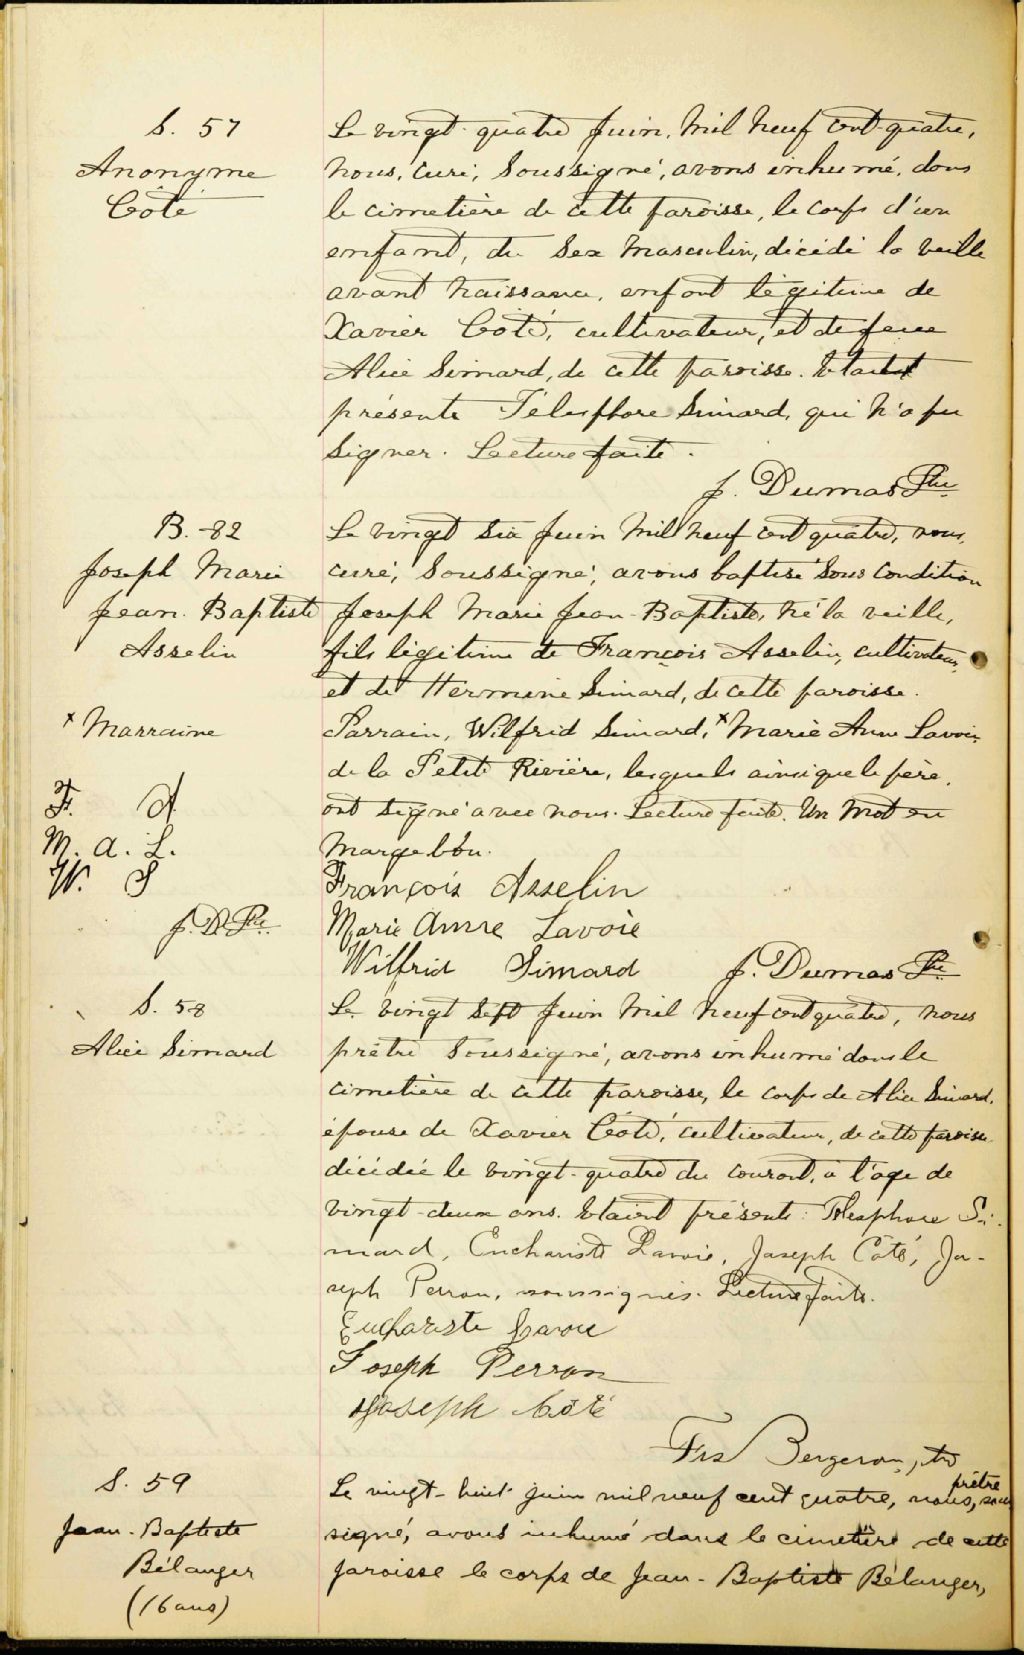 S. 57
Anonyme
Côté
Le vingt-quatre Juin, mil neuf cent quatre,
nous, curé, soussigné, avons inhumé, dans
le cimetière de cette paroisse, le corps d'un
enfant, du sex masculin, décédé la veille
avant naissance, enfant légitime de
Xavier Côté, cultivateur, et de feue
Alice Simard, de cette paroisse. Etait
présente Télesphore Simard, qui n'a pu
signer. Lecture faite.
J. Dumas Ptre
B. -82
Joseph Marie
Jean. Baptiste
Asselin
Le vingt six Juin mil neuf cent quatre, nous,
curé, soussigné, avons baptisé sous condition
Joseph Marie Jean-Baptiste, né la veille,
fils légitime de François Asselin, cultivateur,
et de Hermine Simard, de cette paroisse.
x Marraine
Parrain, Wilfrid Simard, x Marie Anne Lavoie
de la Petite Rivière, lesquels ainsi que le père,
ont signé avec nous. Lecture faite. Un mot en
marge bon.
F. A
M. A. L.
W. S
J. D. Ptre
François Asselin
Marie Anne Lavoie
Wilfrid Simard J. Dumas Ptre
S. 58
Alice Simard
Le vingt sept Juin mil neuf cent quatre, nous
prêtre soussigné, avons inhumé dans le
cimetière de cette paroisse, le corps de Alice Simard,
épouse de Xavier Côté, cultivateur, de cette paroisse
décédée le vingt-quatre du courant, à l'age de
vingt-deux ans. Etaient présents: Télesphore Si-
mard, Euchariste Lavoie, Joseph Côté, Jo-
seph Perron, soussignés. Lecture faite.
Euchariste Lavoie
Joseph Perron
Joseph Côté
Frs Bergeron, ptre
S. 59
Jean-Baptiste
Bélanger
(16 ans)
Le vingt-huit juin mil neuf cent quatre, nous, prêtre sous
signé, avons inhumé dans le cimetière de cette
paroisse le corps de Jean-Baptiste Bélanger,